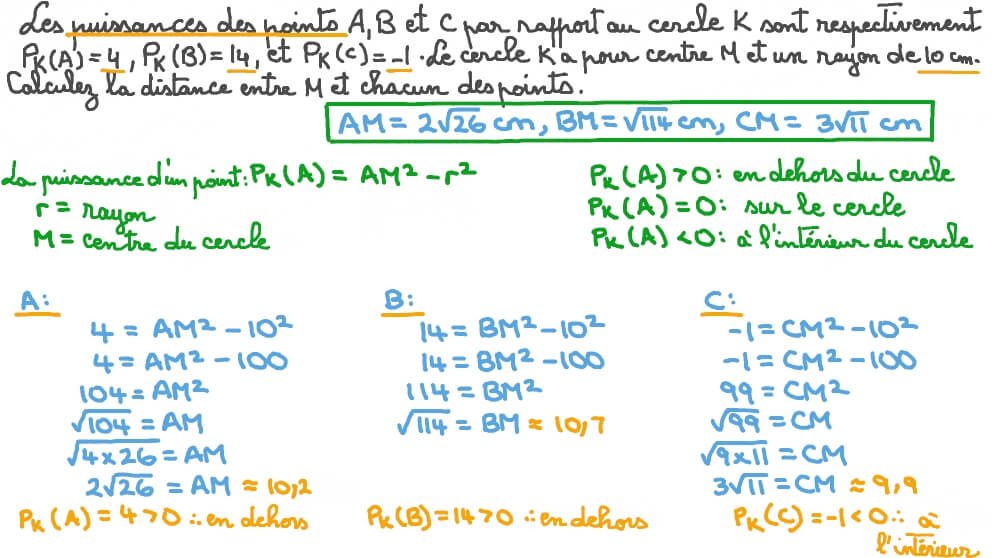 Les puissances des points A, B et C par rapport au cercle K sont respectivement
P_K(A)=4, P_K(B)=14, et P_K(C)=-1. Le cercle K a pour centre M et un rayon de 10 cm.
Calculez la distance entre M et chacun des points.
AM = 2√26 cm, BM = √114 cm, CM = 3√11 cm
La puissance d'un point: P_K(A) = AM² - r²
r = rayon
M = centre du cercle
P_K(A) > 0: en dehors du cercle
P_K(A) = 0: sur le cercle
P_K(A) < 0: à l'intérieur du cercle
A:
4 = AM² - 10²
4 = AM² - 100
104 = AM²
√104 = AM
√4×26 = AM
2√26 = AM ≈ 10,2
P_K(A) = 4 > 0 ∴ en dehors
B:
14 = BM² - 10²
14 = BM² - 100
114 = BM²
√114 = BM ≈ 10,7
P_K(B) = 14 > 0 ∴ en dehors
C:
-1 = CM² - 10²
-1 = CM² - 100
99 = CM²
√99 = CM
√9×11 = CM
3√11 = CM ≈ 9,9
P_K(C) = -1 < 0 ∴ à
l'intérieur